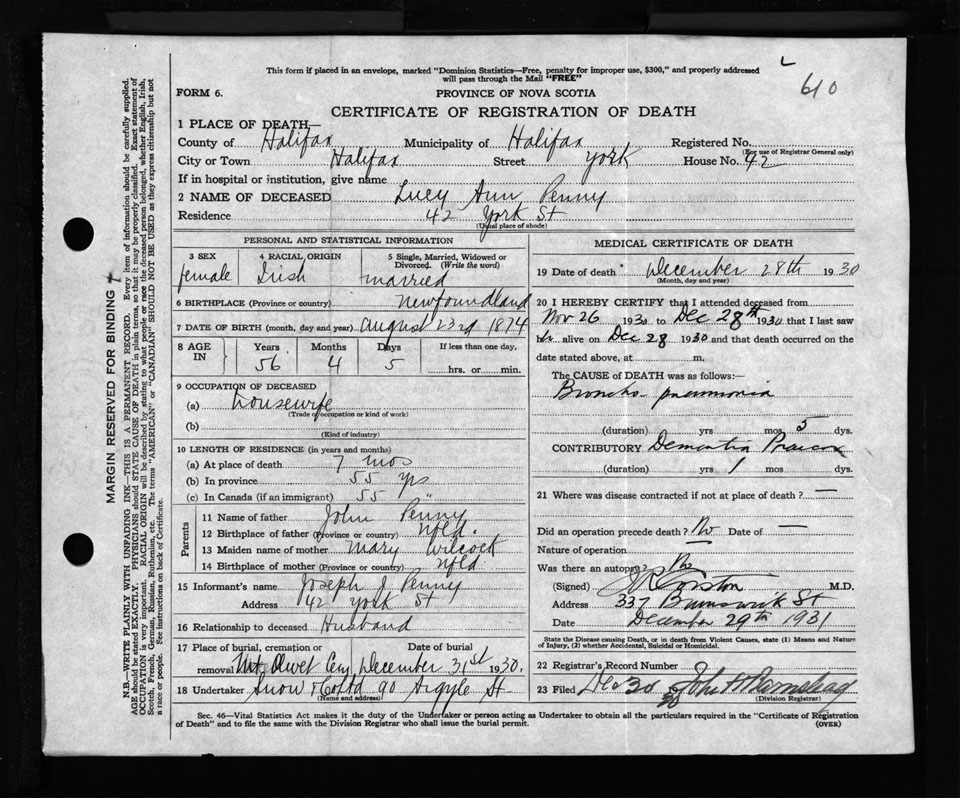 This form if placed in an envelope, marked "Dominion Statistics—Free, penalty for improper use, $300," and properly addressed
will pass through the Mail "FREE"
610
FORM 6.
PROVINCE OF NOVA SCOTIA
CERTIFICATE OF REGISTRATION OF DEATH
1 PLACE OF DEATH—
County of Halifax Municipality of Halifax Registered No.
(For use of Registrar General only)
City or Town Halifax Street York House No. 42
If in hospital or institution, give name
2 NAME OF DECEASED Lucy Ann Penny
Residence 42 York St
(Usual place of abode)
PERSONAL AND STATISTICAL INFORMATION
3 SEX 4 RACIAL ORIGIN 5 Single, Married, Widowed or
Divorced. (Write the word)
female Irish married
6 BIRTHPLACE (Province or country) Newfoundland
7 DATE OF BIRTH (month, day and year) August 23rd 1874
8 AGE IN Years Months Days If less than one day,
56 4 5 hrs. or min.
9 OCCUPATION OF DECEASED
(a) Housewife
(Trade, occupation or kind of work)
(b)
(Kind of industry)
10 LENGTH OF RESIDENCE (in years and months)
(a) At place of death 7 mos
(b) In province 55 yrs
(c) In Canada (if an immigrant) 55 "
Parents
11 Name of father John Penny
12 Birthplace of father (Province or country) Nfld.
13 Maiden name of mother Mary Wilcock
14 Birthplace of mother (Province or country) Nfld
15 Informant's name Joseph J. Penny
Address 42 York St
16 Relationship to deceased Husband
17 Place of burial, cremation or Date of burial
removal Mt. Olivet Cemy December 31st 1930.
18 Undertaker Snow & Co Ltd 90 Argyle St.
(Name and address)
MEDICAL CERTIFICATE OF DEATH
19 Date of death December 28th 1930
(Month, day and year)
20 I HEREBY CERTIFY that I attended deceased from
Nov 26 1930 to Dec 28th 1930 that I last saw
her alive on Dec 28 1930 and that death occurred on the
date stated above, at m.
The CAUSE of DEATH was as follows:—
Broncho pneumonia
(duration) yrs mos 5 dys.
CONTRIBUTORY Dementia Praecox
(duration) yrs 1 mos dys.
21 Where was disease contracted if not at place of death? —
Did an operation precede death? No Date of —
Nature of operation
Was there an autopsy? No
(Signed) Corston M.D.
Address 337 Brunswick St
Date December 29th 1931
State the Disease causing Death, or in death from Violent Causes, state (1) Means and Nature
of Injury, (2) whether Accidental, Suicidal or Homicidal.
22 Registrar's Record Number
23 Filed Dec 30 30 John
(Division Registrar)
Sec. 46—Vital Statistics Act makes it the duty of the Undertaker or person acting as Undertaker to obtain all the particulars required in the "Certificate of Registration
of Death" and to file the same with the Division Registrar who shall issue the burial permit. (OVER)
MARGIN RESERVED FOR BINDING
N.B.—WRITE PLAINLY WITH UNFADING INK—THIS IS A PERMANENT RECORD. Every item of information should be carefully supplied.
AGE should be stated EXACTLY. PHYSICIANS should STATE CAUSE OF DEATH in plain terms, so that it may be properly classified. Exact statement of
OCCUPATION is very important. RACIAL ORIGIN will be described by stating to what people or race the deceased person belonged, whether English, Irish,
Scotch, French, German, Russian, Ruthenian, etc. The terms "AMERICAN" or "CANADIAN" SHOULD NOT BE USED as they express citizenship but not
a race or people. See instructions on back of Certificate.